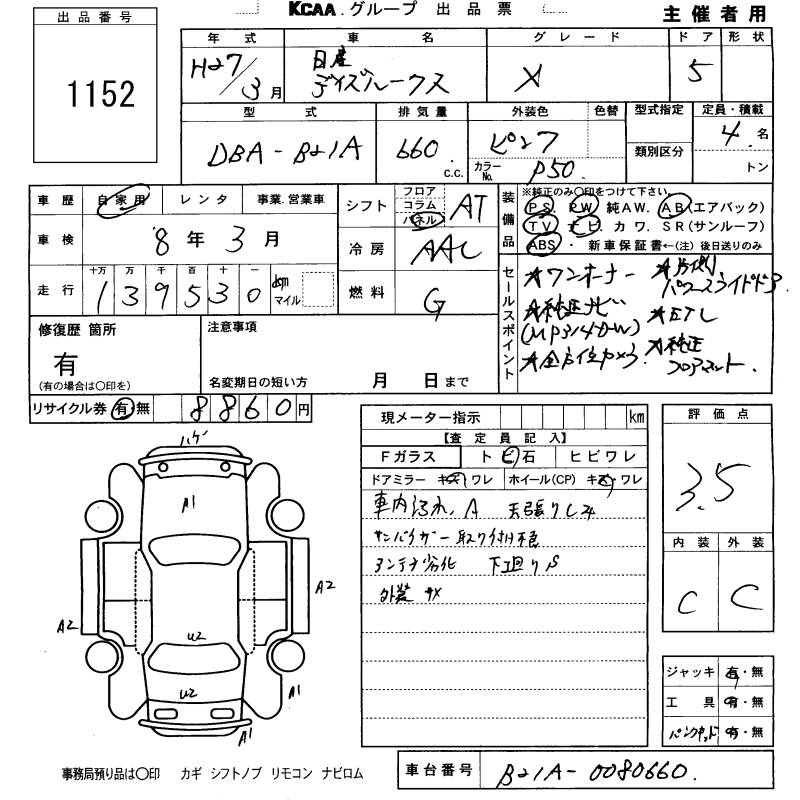 KCAA.グループ 出品票
主催者用
出品番号
1152
年式 車名 グレード ドア 形状
H27/3月 日産 デイズルークス X 5
型式 排気量 外装色 色替 型式指定 定員・積載
DBA-B21A 660 c.c. ピンク 類別区分 4名
カラーNo. P50 トン
車歴 自家用 レンタ 事業.営業車
車検 8年3月
走行 十万 万 千 百 十 一
139530 km マイル
シフト フロア コラム パネル AT
冷房 AAC
燃料 G
装備品 ※純正のみ○印をつけて下さい。
PS. PW 純AW. AB(エアバック)
TV ナビ カワ. SR(サンルーフ)
ABS・ 新車保証書←(注) 後日送りのみ
セールスポイント
★ワンオーナー ★片側パワースライドドア
★純正ナビ(MP314D-W) ★ETC
★全方位カメラ ★純正フロアマット.
修復歴 箇所
有
(有の場合は○印を)
注意事項
名変期日の短い方 月 日まで
リサイクル券 有 無 8860円
現メーター指示 km
【査定員記入】
Fガラス トビ石 ヒビワレ
ドアミラー キズ ワレ ホイール(CP) キズ・ワレ
車内汚れ、A 天張りシミ
サンバイザー取り付け不良
アンテナ劣化 下廻りS
外装 サメ
評価点
3.5
内装 外装
C C
ジャッキ 有・無
工具 有・無
パンクキット 有・無
ハゲ
A1
A2
A2
U2
U2
A1
A1
事務局預り品は○印 カギ シフトノブ リモコン ナビロム
車台番号 B21A-0080660.